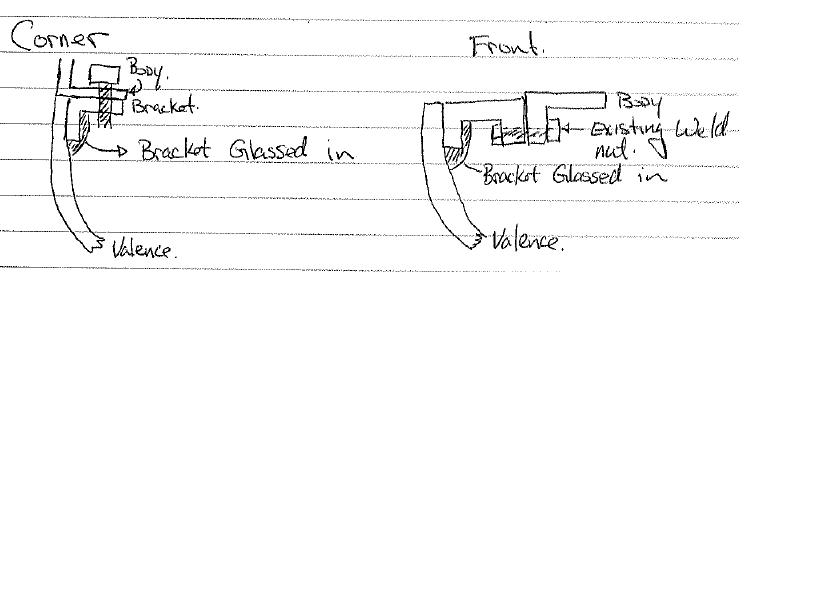 Corner
Body.
Bracket.
Bracket Glassed in
Valence.
Front.
Body
Existing Weld
nut.
Bracket Glassed in
Valence.